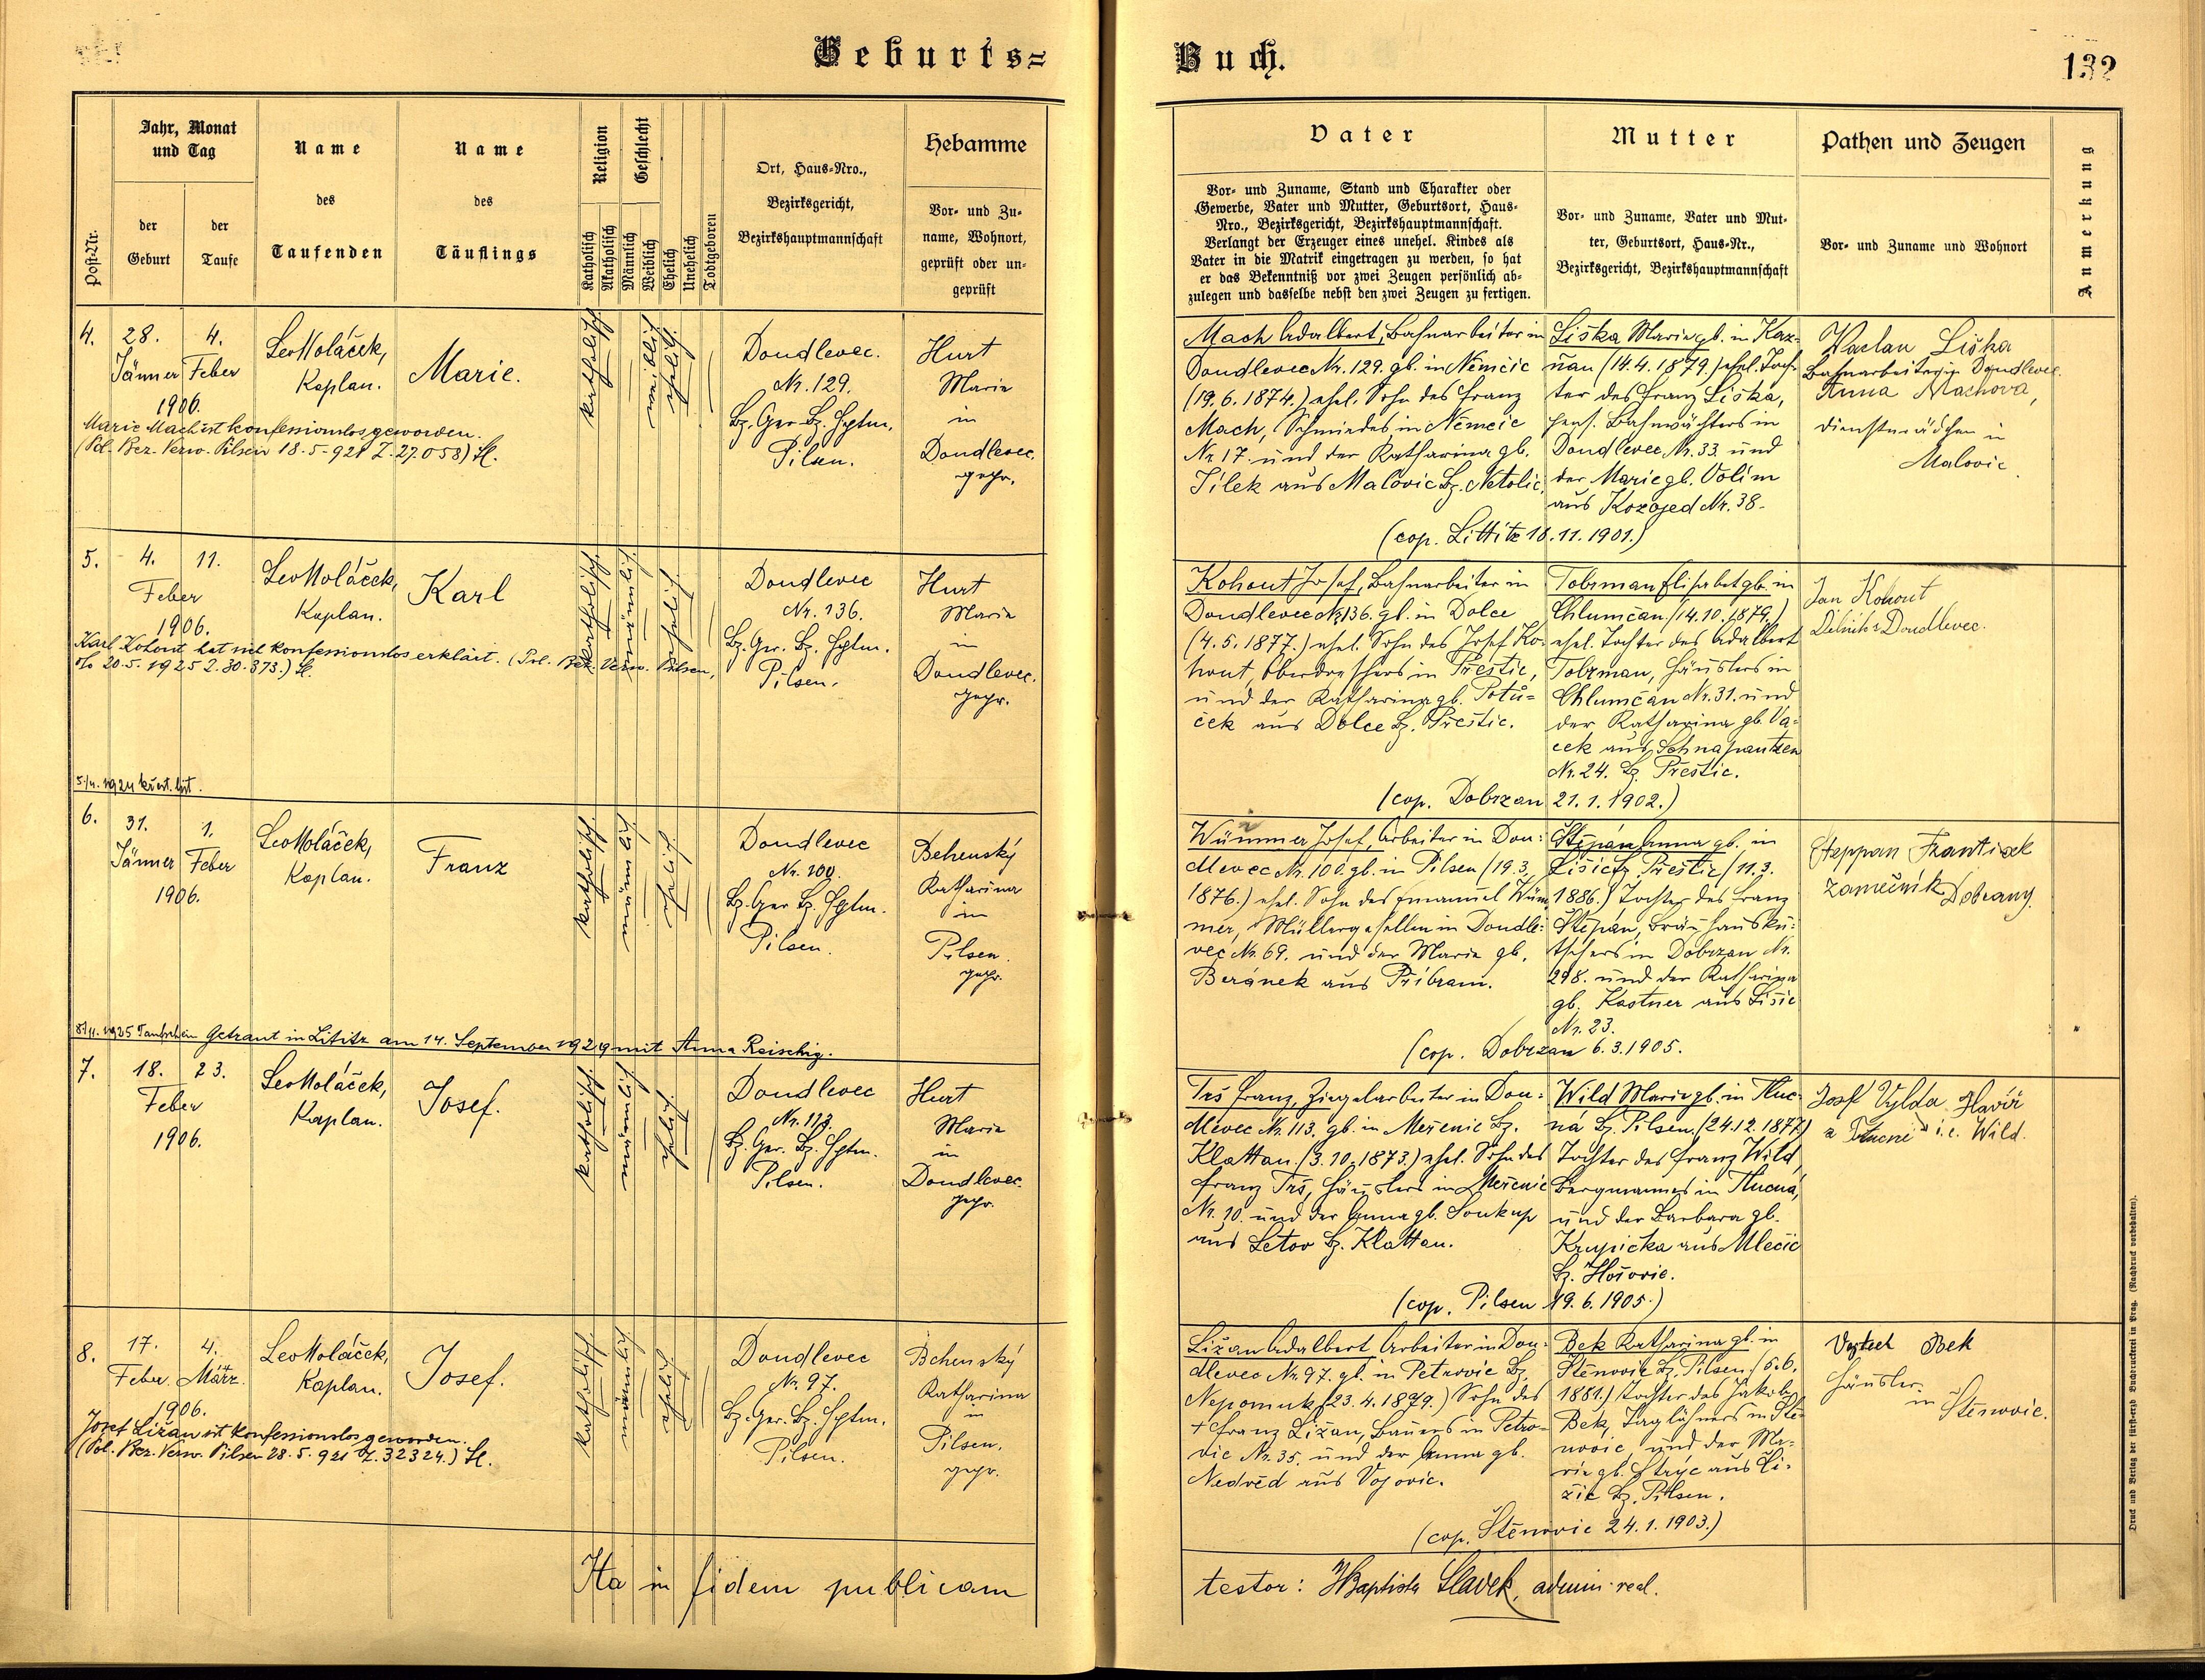 Geburts=
Buch.
132
Post-Nr.
Jahr, Monat
und Tag
der
Geburt
der
Taufe
Name
des
Taufenden
Name
des
Täuflings
Religion
Katholisch
Akatholisch
Geschlecht
Männlich
Weiblich
Ehelich
Unehelich
Todtgeboren
Ort, Haus-Nro.,
Bezirksgericht,
Bezirkshauptmannschaft
Hebamme
Vor- und Zu-
name, Wohnort,
geprüft oder un-
geprüft
Vater
Vor- und Zuname, Stand und Charakter oder
Gewerbe, Vater und Mutter, Geburtsort, Haus-
Nro., Bezirksgericht, Bezirkshauptmannschaft.
Verlangt der Erzeuger eines unehel. Kindes als
Vater in die Matrik eingetragen zu werden, so hat
er das Bekenntniß vor zwei Zeugen persönlich ab-
zulegen und dasselbe nebst den zwei Zeugen zu fertigen.
Mutter
Vor- und Zuname, Vater und Mut-
ter, Geburtsort, Haus-Nr.,
Bezirksgericht, Bezirkshauptmannschaft
Pathen und Zeugen
Vor- und Zuname und Wohnort
Anmerkung
4.
28.
Jänner
4.
Feber
1906.
Leo Moláček,
Kaplan.
Marie.
katholisch
weiblich
ehelich
Doudlevec.
Nr. 129.
Bz. Ger. Bz. Hptm.
Pilsen.
Hurt
Marie
in
Doudlevec.
gepr.
Marie Mach ist konfessionslos geworden.
(Pol. Bez. Verw. Pilsen 18.5.921 Z. 27.058) Sl.
Mach Adalbert, Bahnarbeiter in
Doudlevec Nr. 129. gb. in Němčic
(19.6.1874.) ehel. Sohn des Franz
Mach, Schmiedes in Němčic
Nr. 17. und der Katharina gb.
Jílek aus Malovic Bz. Netolic.
Liška Marie gb. in Kaz-
nau (14.4.1879.) ehel. Toch-
ter des Franz Liška,
pens. Bahnwächters in
Doudlevec Nr. 33. und
der Marie gb. Volím
aus Kozojed Nr. 38.
(cop. Littitz 18.11.1901.)
Vaclav Liška
Bahnarbeiter in Doudlevec.
Anna Machova,
Dienstmädchen in
Malovic.
5.
4.
11.
Feber
1906.
Leo Moláček,
Kaplan.
Karl
katholisch.
männlich
ehelich.
Doudlevec
Nr. 136.
Bz. Ger. Bz. Hptm.
Pilsen.
Hurt
Marie
in
Doudlevec.
gepr.
Karl Kohout hat sich konfessionslos erklärt. (Pol. Bez. Verw. Pilsen,
20.5.1925 Z. 80.373.) Sl.
Kohout Josef, Bahnarbeiter in
Doudlevec Nr. 136. gb. in Dolce
(4.5.1877.) ehel. Sohn des Josef Ko-
hout, Oberdreschers in Přeštic,
und der Katharina gb. Potů-
ček aus Dolce Bz. Přeštic.
Tolzman Elisabet gb. in
Chlumčan (14.10.1879.)
ehel. Tochter des Adalbert
Tolzman, Häuslers in
Chlumčan Nr. 31. und
der Katharina gb. Va-
cek aus Schnapautzen
Nr. 24. Bz. Přeštic.
(cop. Dobrzan 21.1.1902.)
Jan Kohout
Dělník z Doudlevec.
6.
31.
Jänner
1.
Feber
1906.
Leo Moláček,
Kaplan.
Franz
katholisch.
männlich
ehelich.
Doudlevec
Nr. 100.
Bz. Ger. Bz. Hptm.
Pilsen.
Behenský
Katharina
in
Pilsen.
gepr.
Getraut in Lititz am 14. September 1929 mit Anna Reischig.
Wimmer Josef, Arbeiter in Dou-
dlevec Nr. 100. gb. in Pilsen (19.3.
1876.) ehel. Sohn des Emanuel Wim-
mer, Müllergesellen in Doudle-
vec Nr. 69. und der Marie gb.
Beránek aus Příbram.
Štěpán Anna gb. in
Lišic Bz. Přeštic (11.3.
1886.) Tochter des Franz
Štěpán, Bräuhausku-
tschers in Dobrzan Nr.
298. und der Katharina
gb. Kastner aus Lišic
Nr. 23.
(cop. Dobrzan 6.3.1905.
Steppan Frantisek
zamečnik Dobrany.
7.
18.
23.
Feber
1906.
Leo Moláček,
Kaplan.
Josef.
katholisch.
männlich
ehelich.
Doudlevec
Nr. 113.
Bz. Ger. Bz. Hptm.
Pilsen.
Hurt
Marie
in
Doudlevec.
gepr.
Trš Franz, Ziegelarbeiter in Dou-
dlevec Nr. 113. gb. in Meženic Bz.
Klattau (3.10.1873.) ehel. Sohn des
Franz Trš, Häuslers in Meženic
Nr. 10. und der Anna gb. Soukup
aus Letov Bz. Klattau.
Wild Marie gb. in Tluc-
ná Bz. Pilsen. (24.12.1877)
Tochter des Franz Wild,
Bergmannes in Tlucná,
und der Barbara gb.
Krupička aus Mlečic
Bz. Hořovic.
(cop. Pilsen 19.6.1905.)
Josef Vylda Havíř
z Tlucne i.e. Wild.
8.
17.
Feber.
4.
März.
1906.
Leo Moláček,
Kaplan.
Josef.
katholisch.
männlich
ehelich
Doudlevec
Nr. 97.
Bz. Ger. Bz. Hptm.
Pilsen.
Behenský
Katharina
in
Pilsen.
gepr.
Josef Ližan ist konfessionslos geworden.
(Pol. Bez. Verw. Pilsen 28.5.921 Z. 32324.) Sl.
Ližan Adalbert Arbeiter in Dou-
dlevec Nr. 97. gb. in Petrovic Bz.
Nepomuk (23.4.1879.) Sohn des
+ Franz Ližan, Bauers in Petro-
vic Nr. 35. und der Anna gb.
Nedvěd aus Vojovic.
Bek Katharina gb. in
Štěnovic Bz. Pilsen (6.6.
1881.) Tochter des Jakob
Bek, Taglöhners in Ště-
novic und der Ma-
rie gb. Strýc aus Li-
žic Bz. Pilsen.
(cop. Štěnovic 24.1.1903.)
Vojtech Bek
Häusler
in
Štěnovic.
Ita in fidem publicam
testor: J Baptista Slavek, admin. recl.
Druck und Verlag der fürsterzb. Buchdruckerei in Prag. (Nachdruck vorbehalten).